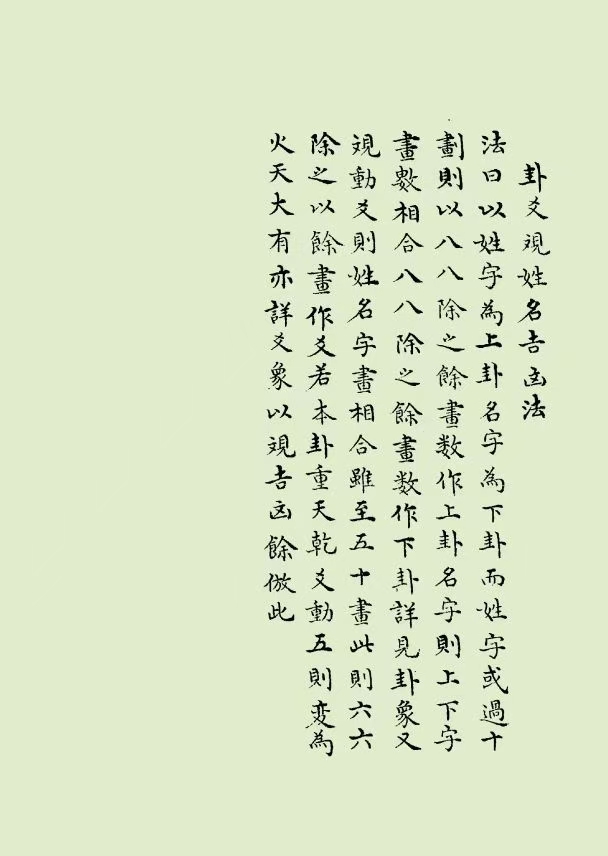 卦爻視姓名吉凶法
法曰以姓字為上卦名字為下卦而姓字或過十
劃則以八八除之餘畫数作上卦名字則上下字
畫數相合八八除之餘畫数作下卦詳見卦象又
視動爻則姓名字畫相合雖至五十畫此則六六
除之以餘畫作爻若本卦重天乾爻動五則変為
火天大有亦詳爻象以視吉凶餘倣此